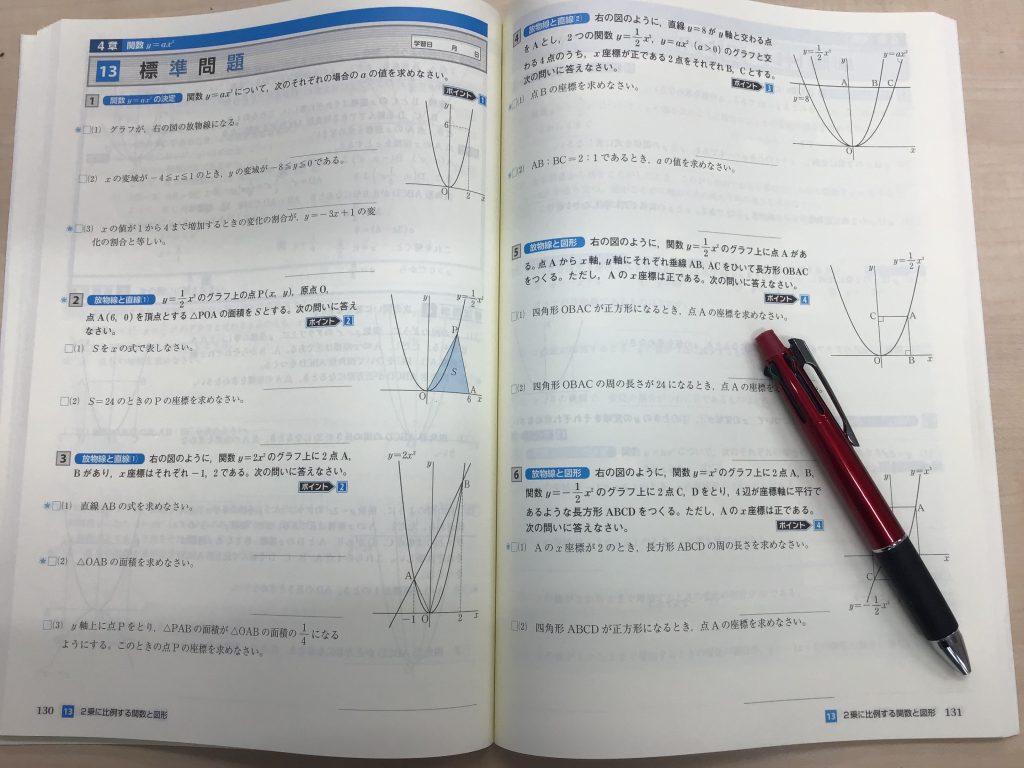 4章 関数 y=ax²
学習日 月 日
13 標準問題
1 関数 y=ax² の決定 関数 y=ax² について，次のそれぞれの場合の a の値を求めなさい。
ポイント 1
*□(1) グラフが，右の図の放物線になる。
y
6
O 2 x
□(2) x の変域が −4≦x≦1 のとき，y の変域が −8≦y≦0 である。
*□(3) x の値が 1 から 4 まで増加するときの変化の割合が，y=−3x+1 の変
化の割合と等しい。
*2 放物線と直線(1) y=1/2x² のグラフ上の点 P(x, y)，原点 O，
点 A(6, 0) を頂点とする △POA の面積を S とする。次の問いに答え
なさい。
ポイント 2
□(1) S を x の式で表しなさい。
□(2) S=24 のときの P の座標を求めなさい。
y y=1/2x²
P
S
O 6 A x
3 放物線と直線(1) 右の図のように，関数 y=2x² のグラフ上に 2 点 A，
B があり，x 座標はそれぞれ −1，2 である。次の問いに答えなさい。
ポイント 2
*□(1) 直線 AB の式を求めなさい。
*□(2) △OAB の面積を求めなさい。
□(3) y 軸上に点 P をとり，△PAB の面積が △OAB の面積の 1/4 になる
ようにする。このときの点 P の座標を求めなさい。
y=2x² y
B
A
−1 O 2 x
130 13 2乗に比例する関数と図形
4 放物線と直線(2) 右の図のように，直線 y=8 が y 軸と交わる点
を A とし，2 つの関数 y=1/2x²，y=ax² (a>0) のグラフと交
わる 4 点のうち，x 座標が正である 2 点をそれぞれ B，C とする。
次の問いに答えなさい。
ポイント 3
*□(1) 点 B の座標を求めなさい。
*□(2) AB：BC＝2：1 であるとき，a の値を求めなさい。
y=1/2x² y y=ax²
A B C
y=8
O x
5 放物線と図形 右の図のように，関数 y=1/2x² のグラフ上に点 A があ
る。点 A から x 軸，y 軸にそれぞれ垂線 AB，AC をひいて長方形 OBAC
をつくる。ただし，A の x 座標は正である。次の問いに答えなさい。
ポイント 4
□(1) 四角形 OBAC が正方形になるとき，点 A の座標を求めなさい。
□(2) 四角形 OBAC の周の長さが 24 になるとき，点 A の座標を
y y=1/2x²
C A
O B x
6 放物線と図形 右の図のように，関数 y=x² のグラフ上に 2 点 A，B，
関数 y=−1/2x² のグラフ上に 2 点 C，D をとり，4 辺が座標軸に平行で
あるような長方形 ABCD をつくる。ただし，A の x 座標は正である。
次の問いに答えなさい。
ポイント 4
*□(1) A の x 座標が 2 のとき，長方形 ABCD の周の長さを求めなさい。
□(2) 四角形 ABCD が正方形になるとき，点 A の座標を求めなさい。
y=x²
A
x
C
y=−1/2x²
13 2乗に比例する関数と図形 131